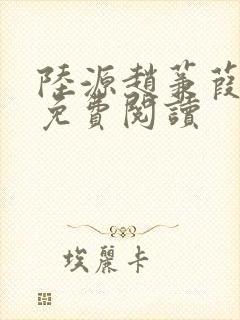 陸源趙蒹葭
免費閱讀
埃麗卡